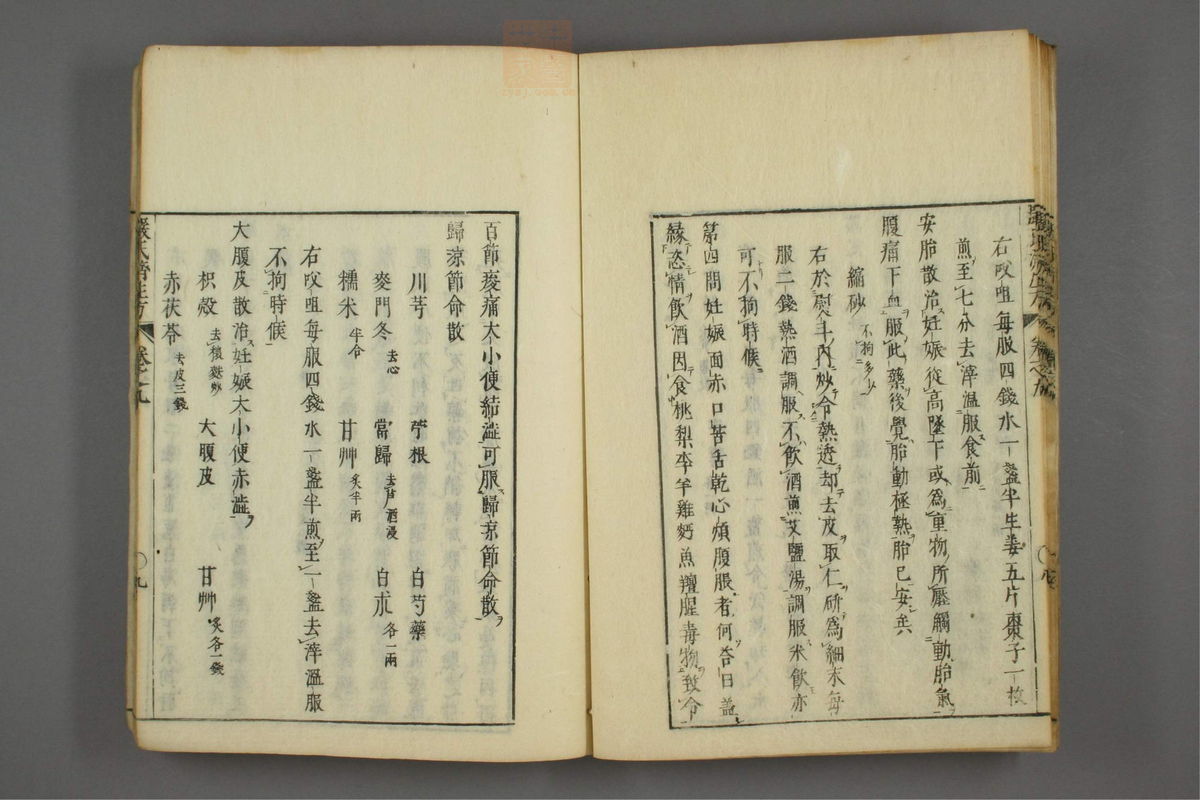 右㕮咀每服四錢水一盞半生姜五片棗子一枚
煎至七分去滓溫服食前
安胎散治妊娠從高墜下或爲重物所壓觸動胎氣
腹痛下血服此藥後覺胎動極熱胎已安矣
縮砂 不拘多少
右於慰斗內炒令熱透却去皮取仁研爲細末每
服二錢熱酒調服不飲酒煎艾鹽湯調服米飲亦
可不拘時候
第四問妊娠面赤口苦舌乾心煩腹脹者何答曰蓋
緣恣情飲酒因食桃梨李羊雞麪魚羶腥毒物致令
百節痠痛大小便結澁可服歸涼節命散
歸涼節命散
川芎 苧根 白芍藥
麥門冬 去心 當歸 去芦酒浸 白朮 各一兩
糯米 半合 甘艸 炙半兩
右㕮咀每服四錢水一盞半煎至一盞去滓溫服
不拘時候
大腹皮散治妊娠大小便赤澁
枳殼 去穰麩炒 大腹皮 甘艸 炙各一錢
赤茯苓 去皮三錢
嚴氏濟生方 卷之九 九